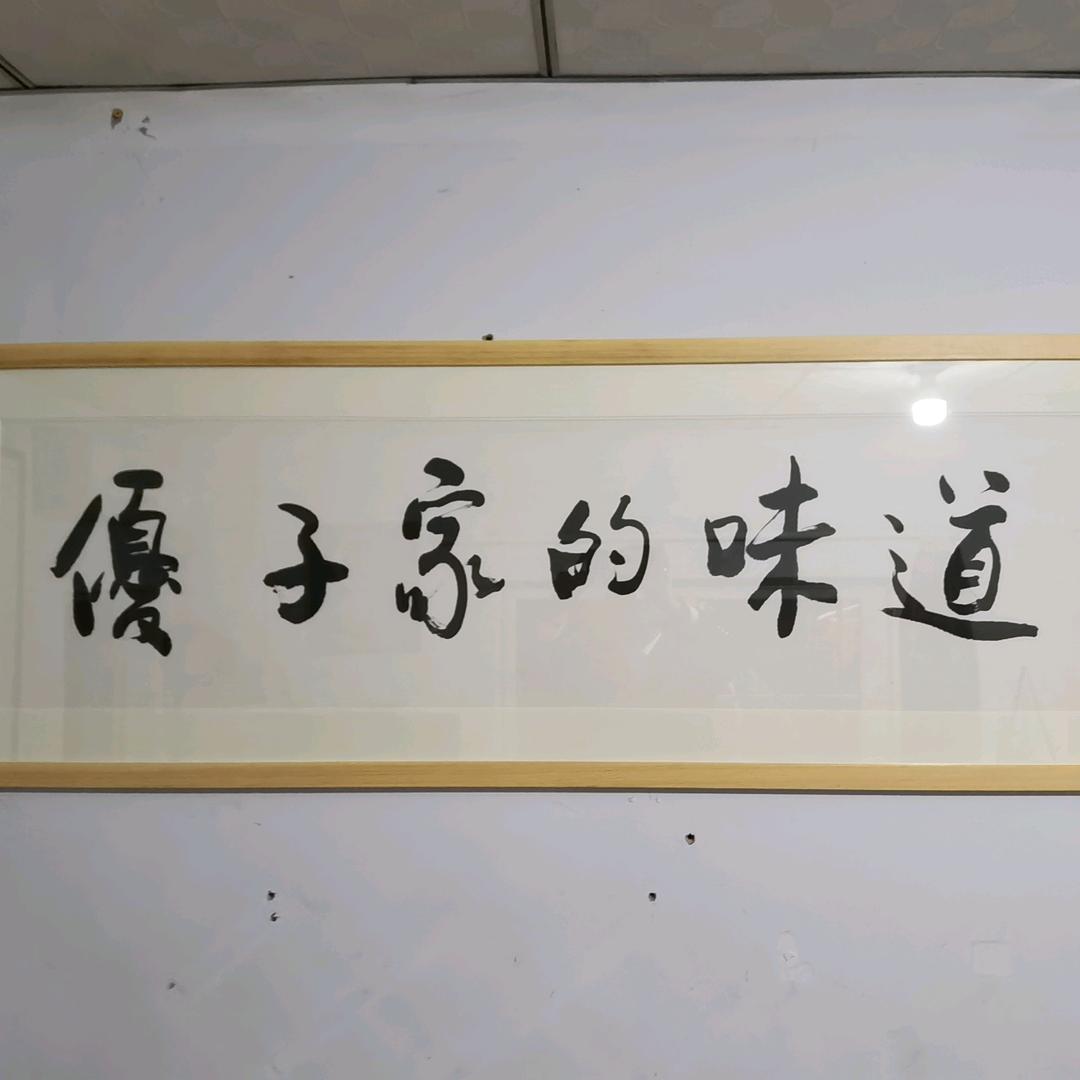 優子家的味道